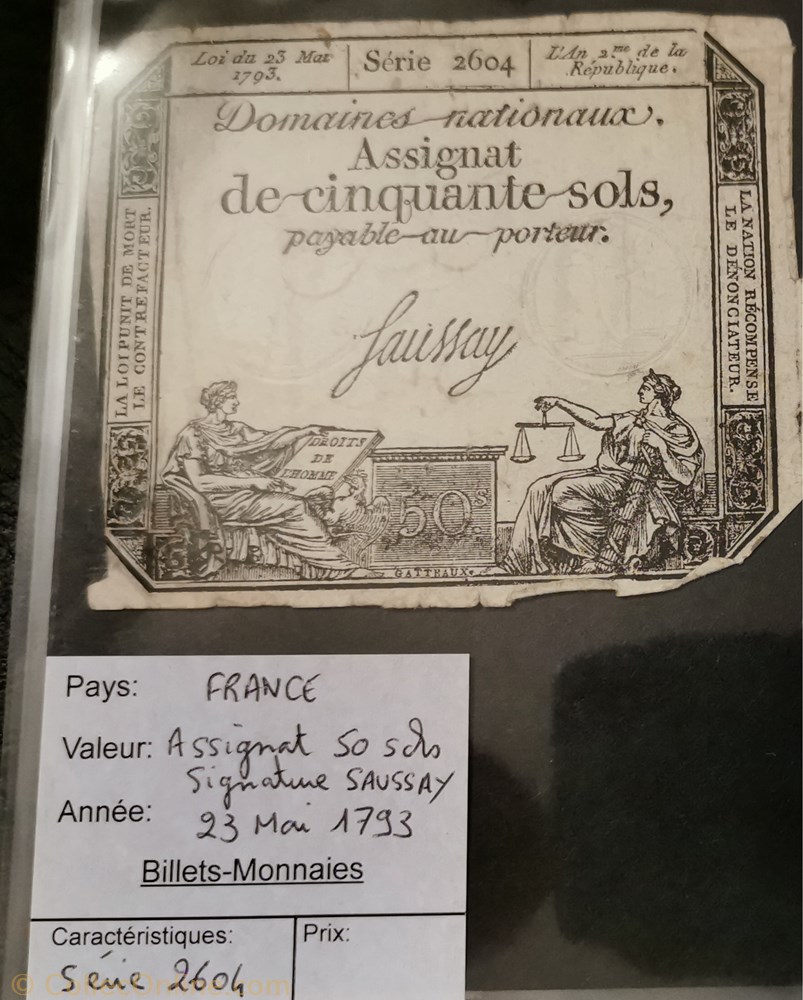 Loi du 23 Mai
1793.
Série 2604
L'An 2.me de la
République.
Domaines nationaux.
Assignat
de cinquante sols,
payable au porteur.
LA LOI PUNIT DE MORT
LE CONTREFACTEUR.
LA NATION RÉCOMPENSE
LE DENONCIATEUR.
Saussay
DROITS
DE
L'HOMME
50s
GATTEAUX.
Pays: FRANCE
Valeur: Assignat 50 sols
Signature SAUSSAY
Année: 23 Mai 1793
Billets-Monnaies
Caractéristiques:
Prix:
Série 2604
© CollecOnline.com